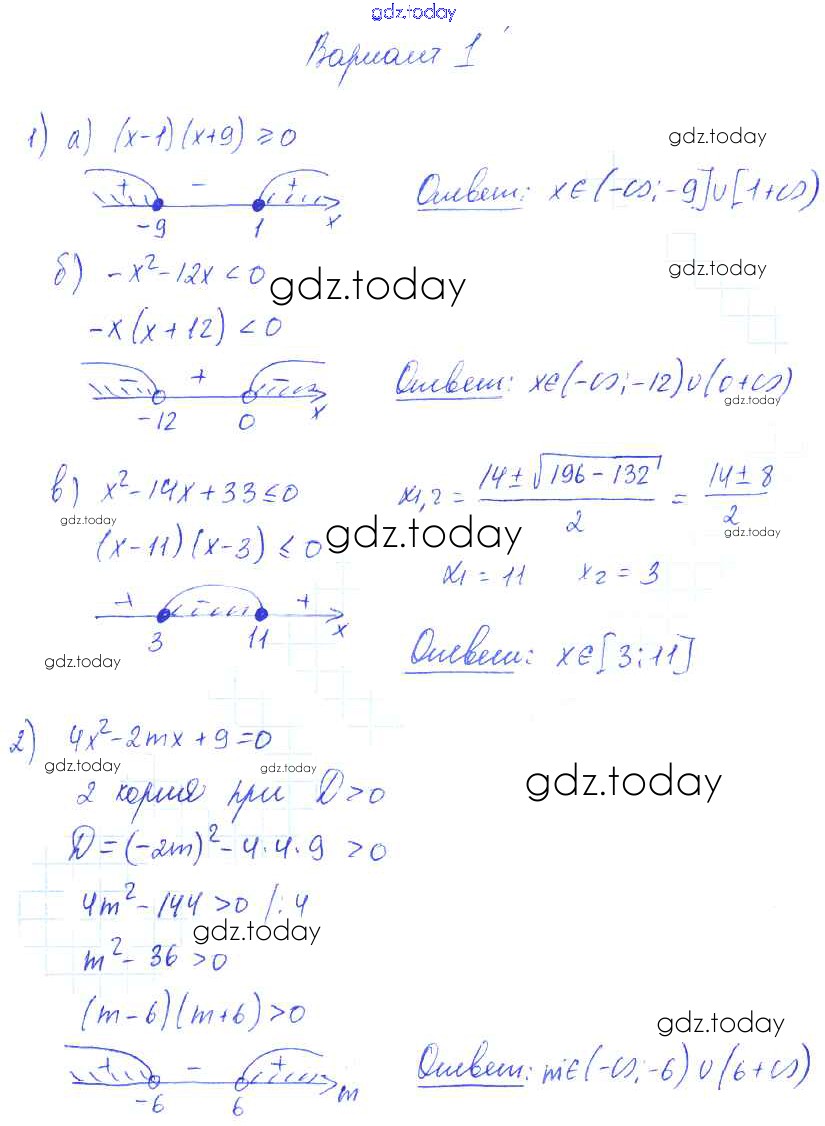 gdz.today
Вариант 1
1) а) (x-1)(x+9) ≥ 0
gdz.today
+ - +
-9 1 x
Ответ: x∈(-∞;-9]∪[1+∞)
б) -x²-12x<0
gdz.today
gdz.today
-x(x+12)<0
- + -
-12 0 x
Ответ: x∈(-∞;-12)∪(0+∞)
gdz.today
в) x²-14x+33≤0
x₁,₂ = (14±√(196-132))/2 = (14±8)/2
gdz.today
gdz.today
gdz.today
(x-11)(x-3)≤0
x₁=11 x₂=3
+ - +
3 11 x
gdz.today
Ответ: x∈[3;11]
2) 4x²-2mx+9=0
gdz.today
gdz.today
gdz.today
2 корня при D>0
D=(-2m)²-4·4·9 >0
4m²-144>0 /:4
gdz.today
m²-36>0
(m-6)(m+6)>0
gdz.today
+ - +
-6 6 m
Ответ: m∈(-∞;-6)∪(6+∞)